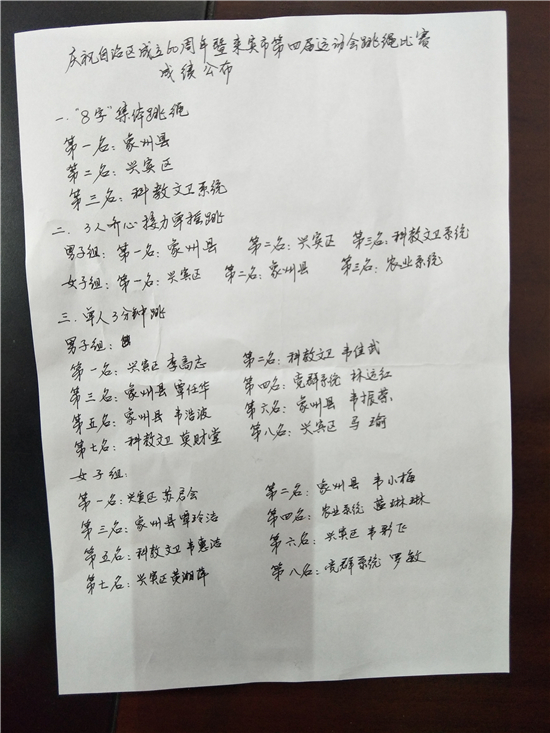 庆祝自治区成立60周年暨来宾市第四届运动会跳绳比赛
成绩公布
一."8字"集体跳绳
第一名：象州县
第二名：兴宾区
第三名：科教文卫系统
二. 3人齐心接力单摇跳
男子组：第一名：象州县 第二名：兴宾区 第三名：科教文卫系统
女子组：第一名：兴宾区 第二名：象州县 第三名：农业系统
三.单人3分钟跳
男子组：
第一名：兴宾区 李高志 第二名：科教文卫 韦佳武
第三名：象州县 覃任华 第四名：党群系统 林运红
第五名：象州县 韦浩波 第六名：象州县 韦振荣
第七名：科教文卫 莫财堂 第八名：兴宾区 马瑜
女子组：
第一名：兴宾区 苏启会 第二名：象州县 韦小梅
第三名：象州县 覃玲洁 第四名：农业系统 蓝琳琳
第五名：科教文卫 韦惠洁 第六名：兴宾区 韦彩飞
第七名：兴宾区 黄湘萍 第八名：党群系统 罗敏